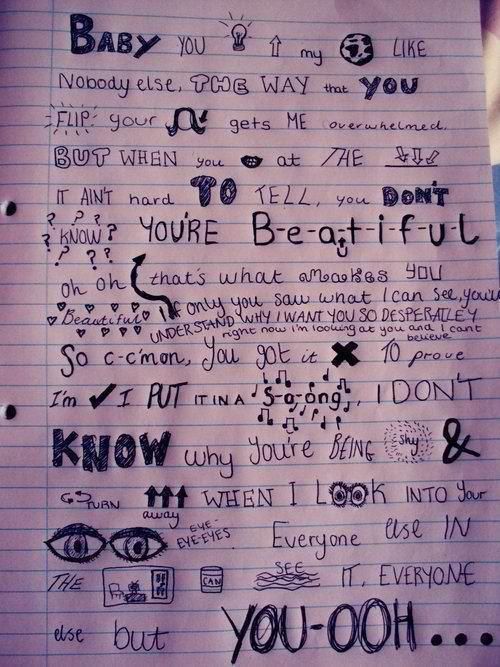 BABY YOU my LIKE
Nobody else, THE WAY that YOU
FLIP your gets ME overwhelmed,
BUT WHEN you at THE
IT AIN'T hard TO TELL, you DON'T
? ? ? ? KNOW ? ? ? ? YOU'RE B-e-a-t-i-f-u-L
u
oh oh that's what makes YOU
Beautiful If only you saw what I can see, you'll
UNDERSTAND WHY I WANT YOU SO DESPERATLEY
right now I'm looking at you and I can't
believe
So c-c'mon, You got it TO prove
I'm I PUT IT IN A S-o-ong, I DON'T
KNOW why you're BEING shy &
TURN WHEN I LOOK INTO your
away
EYE-
EYE-EYES. Everyone else IN
THE CAN SEE IT, EVERYONE
else but YOU-OOH...